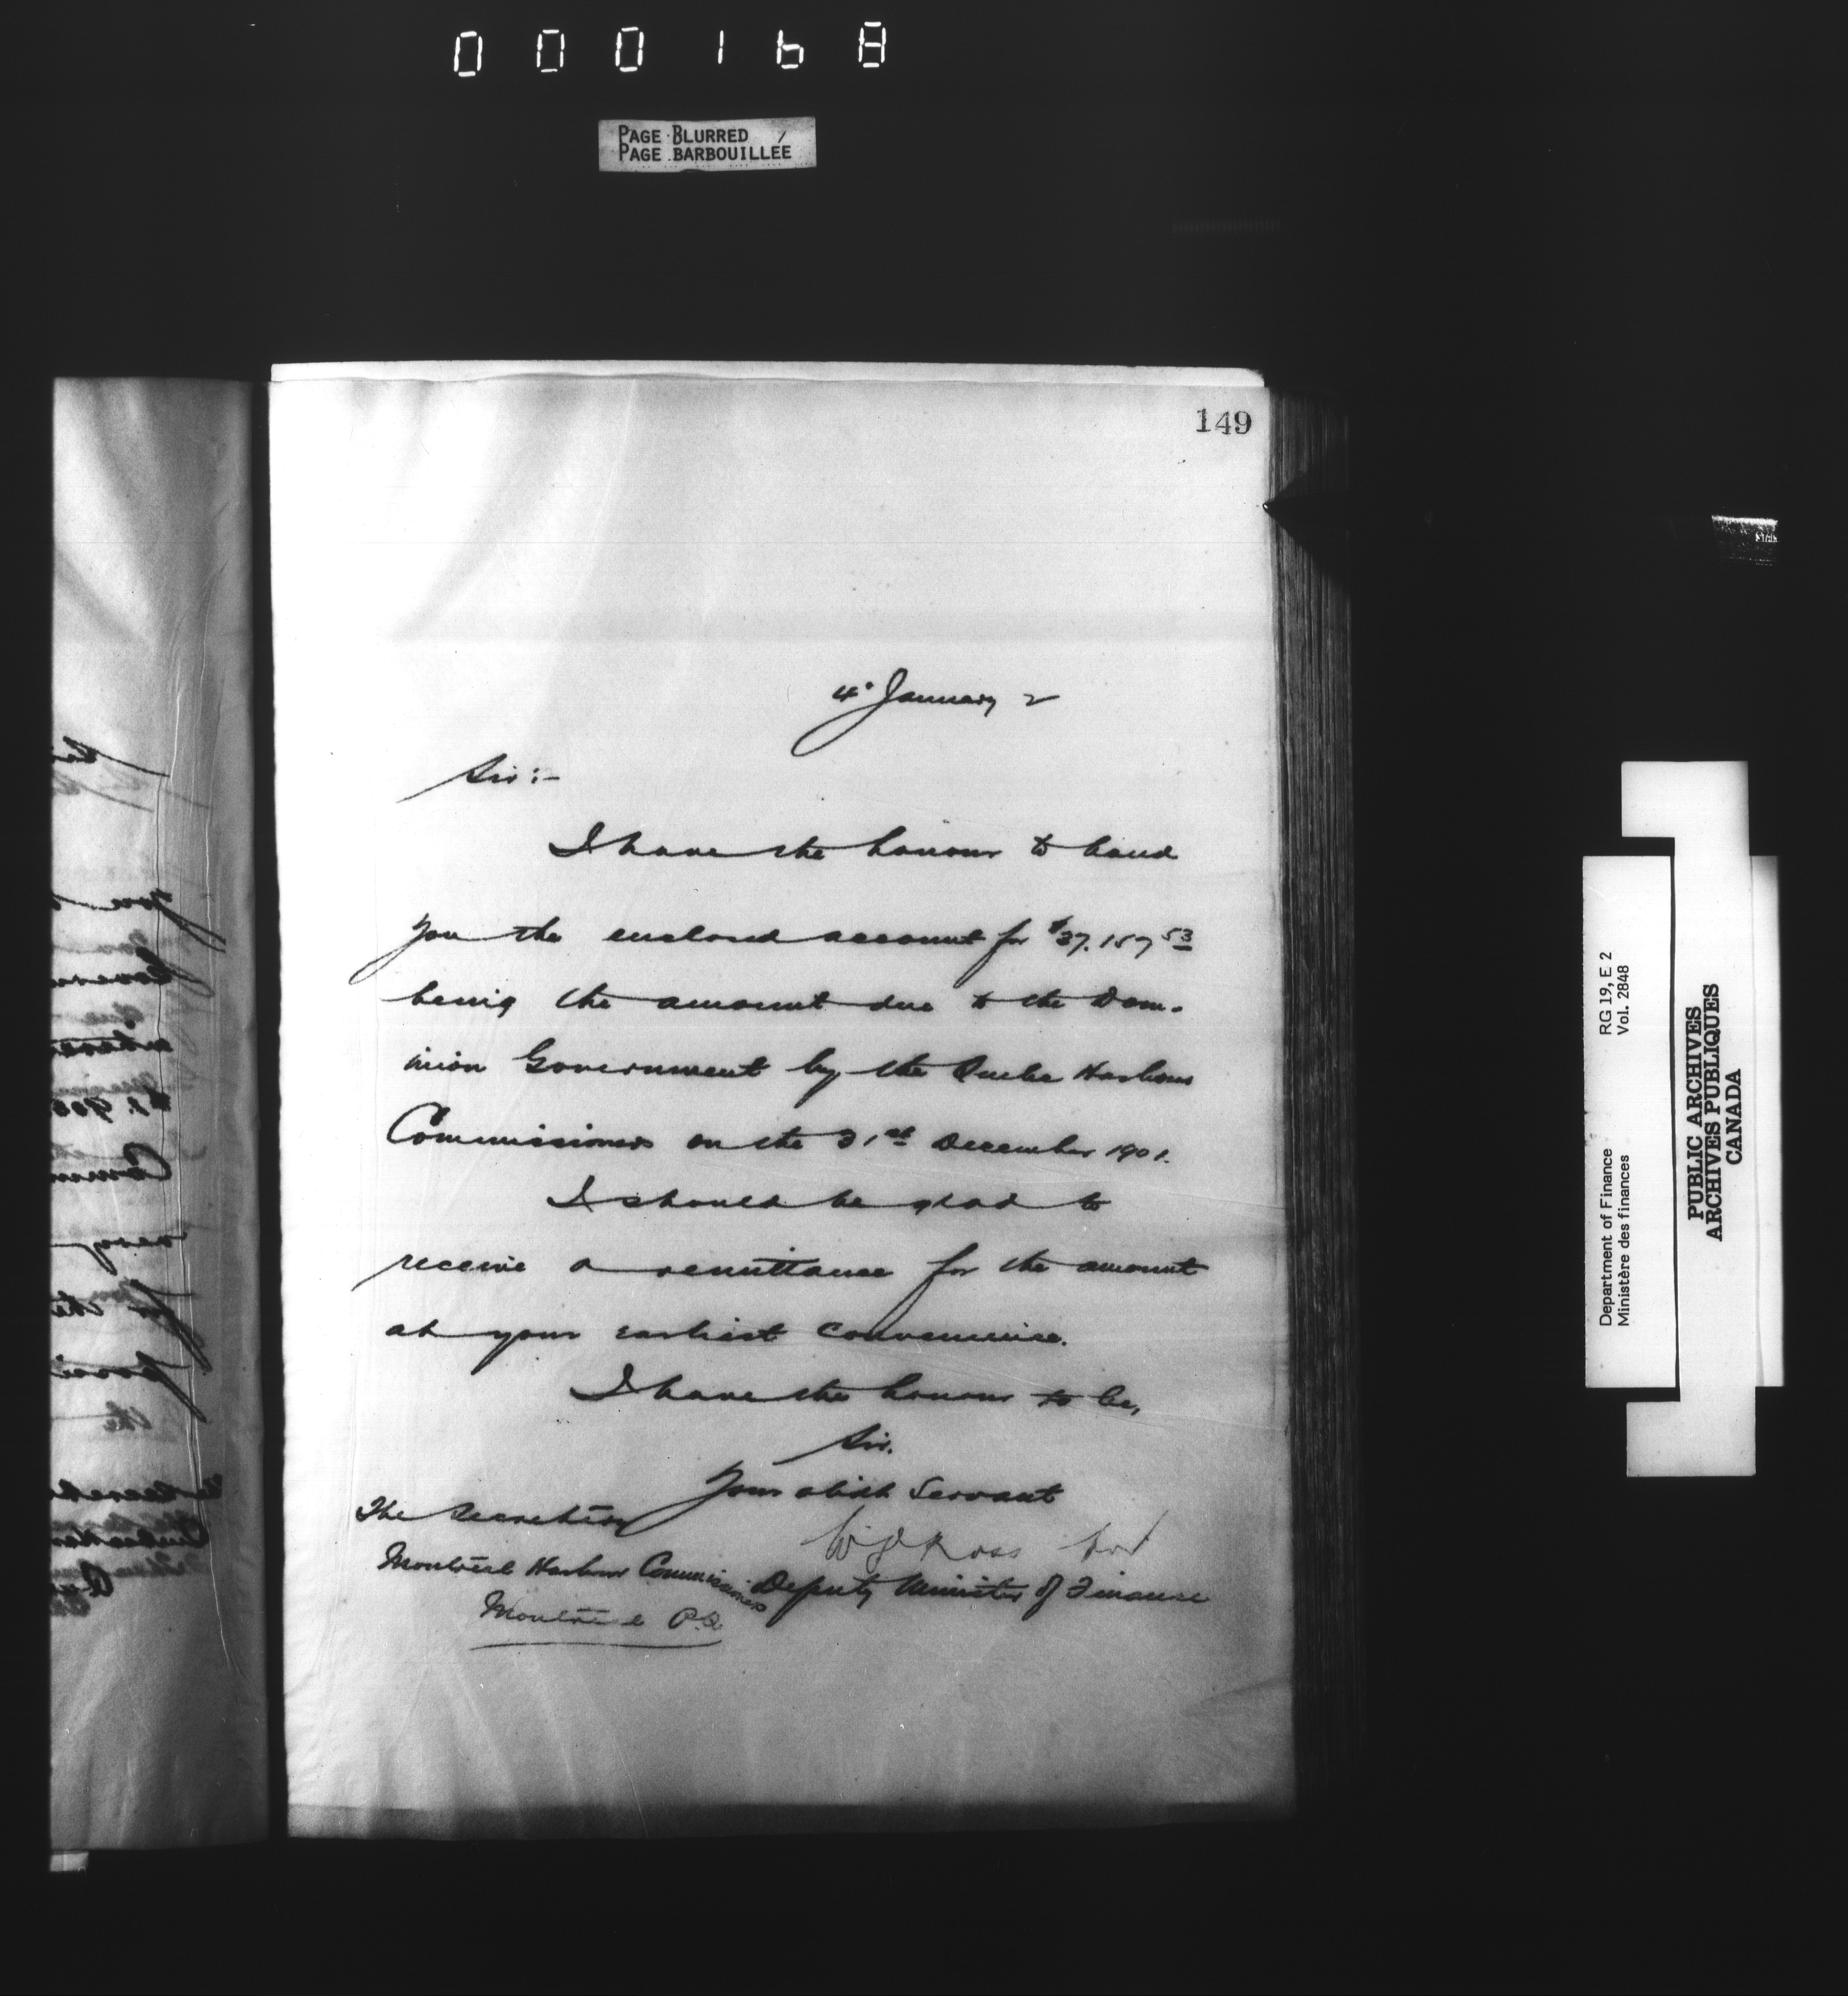 000168
PAGE BLURRED /
PAGE BARBOUILLEE
149
4° January 2
Sir :-
I have the honour to hand
you the enclosed account for $37.157 53
being the amount due to the Dom-
inion Government by the Quebec Harbour
Commissioners on the 31st December 1901.
I should be glad to
receive a remittance for the amount
at your earliest convenience.
I have the honour to be,
Sir.
Your obedt Servant
The Secretary
Ross
Montreal Harbour Commissioners
Deputy Minister of Finance
Montreal P.Q.
Department of Finance
Ministère des finances
RG 19, E 2
Vol. 2848
PUBLIC ARCHIVES
ARCHIVES PUBLIQUES
CANADA